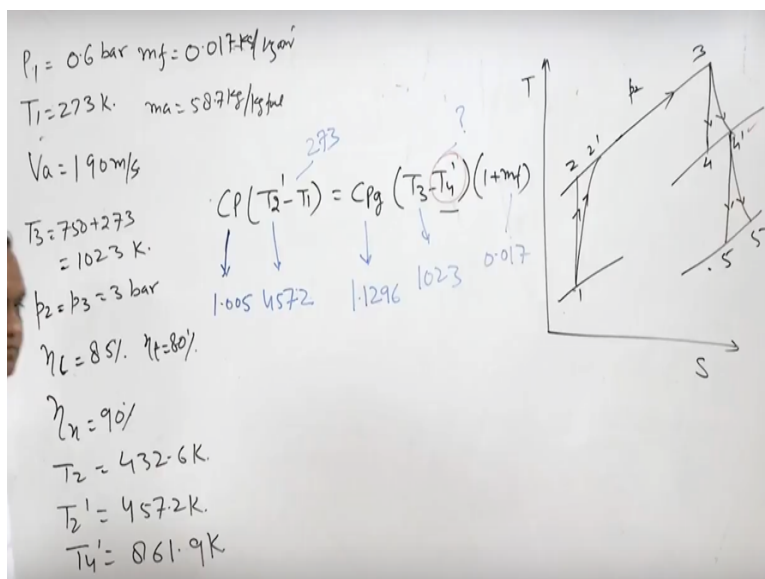 P1 = 0.6 bar mf = 0.017 kg/kg air
T1 = 273 K. ma = 58.7 kg/kg fuel
Va = 190 m/s
T3 = 750+273
= 1023 K.
p2 = p3 = 3 bar
ηc = 85% ηt = 80%
ηn = 90%
T2 = 432.6 K.
T2' = 457.2 K.
T4' = 861.9 K
273
?
CP (T2' - T1) = CPg (T3 - T4') (1+mf)
1.005 457.2 1.1296 1023 0.017
T
p2
3
2 2'
4 4'
1
.5 5'
S